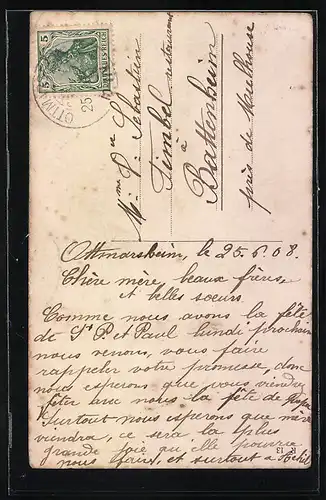 DEUTSCHES REICH
5 5
OTTM
25
Mme Vve Sébastien
Timbel restaurant
à
Battenheim
près de Mulhouse
Ottmarsheim, le 25.6.08.
Chère mère, beaux frères,
et belles soeurs.
Comme nous avons la fête
de St P. et Paul lundi prochain
nous venons, vous faire
rappeler votre promesse, donc
nous esperons que vous viendrez
fêter avec nous la fête de
Surtout nous esperons que mère
viendra, ce sera la plus
grande joie qu'elle pourra
nous faire, et surtout à